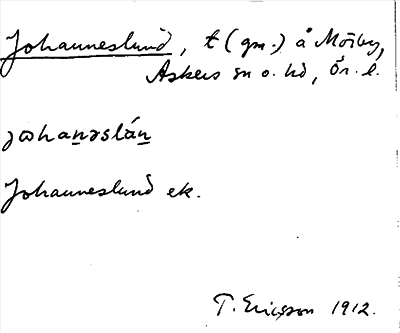 Johanneslund, t (gm.) å Mörby,
Askers sn o. hd, Ör. l.
johanəslán
Johanneslund ek.
T. Ericsson 1912.